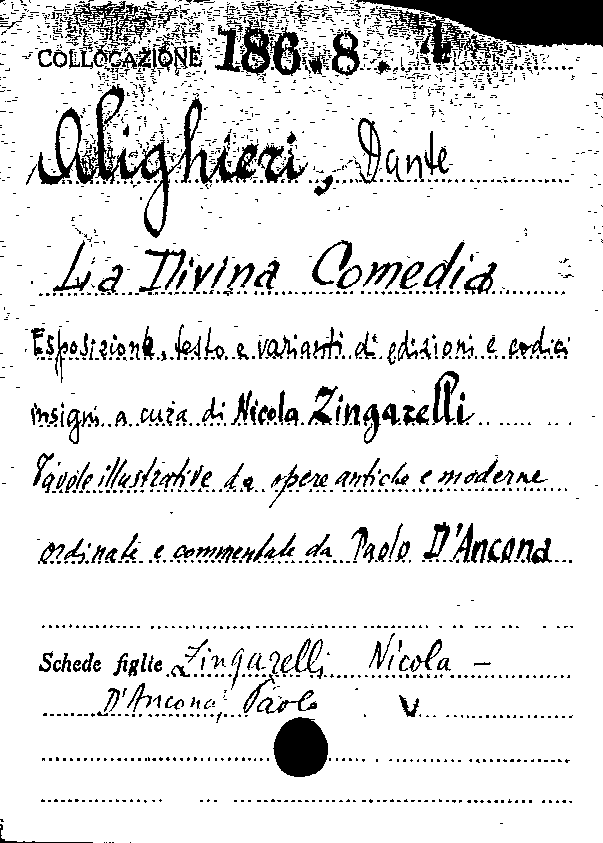 COLLOCAZIONE 186.8.4
Alighieri, Dante
La Divina Comedia
Esposizione, testo e varianti di edizioni e codici
insigni a cura di Nicola Zingarelli
Tavole illustrative da opere antiche e moderne
ordinate e commentate da Paolo D'Ancona
Schede figlie Zingarelli Nicola -
D'Ancona, Paolo V